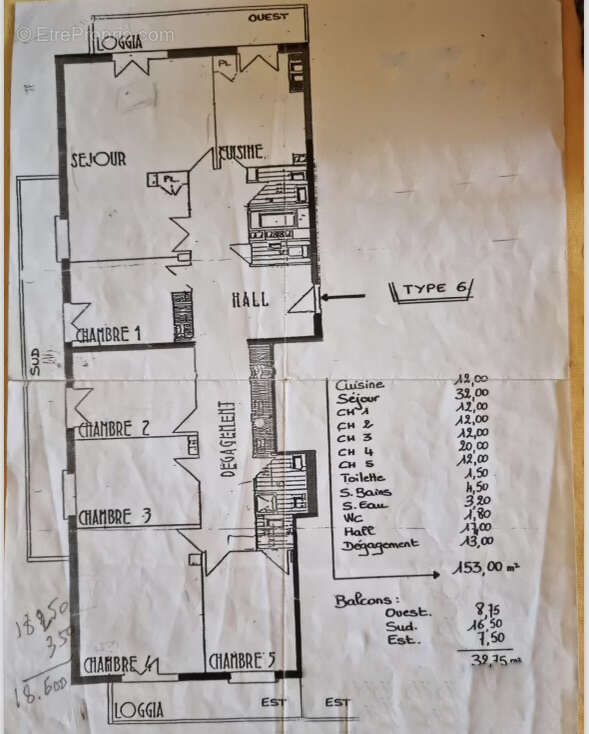 © EtreProprio.com
OUEST
LOGGIA
PL
SEJOUR
CUISINE
PL
HALL
TYPE 6
CHAMBRE 1
SUD
CHAMBRE 2
DEGAGEMENT
CHAMBRE 3
CHAMBRE 4
CHAMBRE 5
LOGGIA
EST
EST
Cuisine 12,00
Séjour 32,00
CH 1 12,00
CH 2 12,00
CH 3 12,00
CH 4 20,00
CH 5 12,00
Toilette 1,50
S. Bains 4,50
S. Eau 3,20
WC 1,80
Hall 17,00
Dégagement 13,00
153,00 m²
Balcons :
Ouest. 8,75
Sud. 16,50
Est. 7,50
32,75 m²